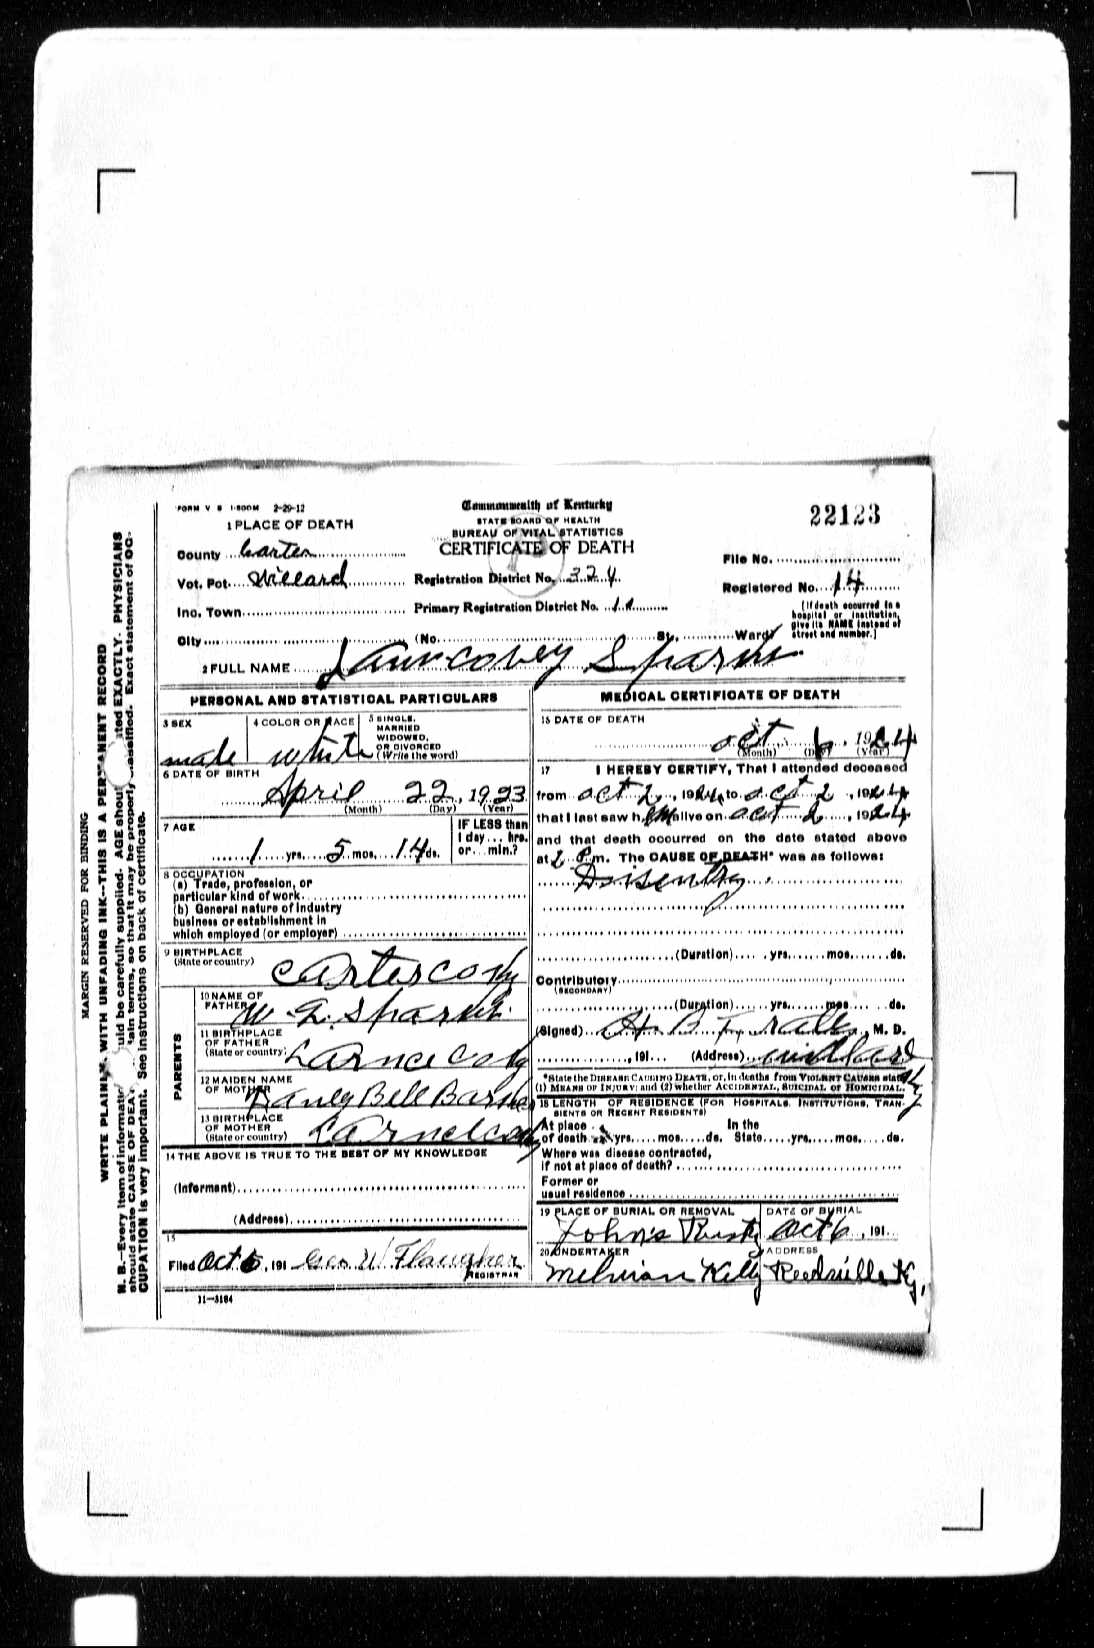 FORM V S 1-500M 2-29-12
Commonwealth of Kentucky
STATE BOARD OF HEALTH
BUREAU OF VITAL STATISTICS
CERTIFICATE OF DEATH
22123
1 PLACE OF DEATH
County Carter
Vot. Pct. Willard
Inc. Town
City
Registration District No. 324
Primary Registration District No. 11
(No. St., Ward)
File No.
Registered No. 14
[If death occurred in a
hospital or institution,
give its NAME instead of
street and number.]
2 FULL NAME Sparks
PERSONAL AND STATISTICAL PARTICULARS
3 SEX
male
4 COLOR OR RACE
white
5 SINGLE,
MARRIED
WIDOWED,
OR DIVORCED
(Write the word)
6 DATE OF BIRTH
April 22, 1923
(Month) (Day) (Year)
7 AGE
1 yrs. 5 mos. 14 ds.
IF LESS than
1 day ... hrs.
or ... min.?
8 OCCUPATION
(a) Trade, profession, or
particular kind of work
(b) General nature of industry
business or establishment in
which employed (or employer)
9 BIRTHPLACE
(State or country)
Carter Co Ky
PARENTS
10 NAME OF
FATHER
W. L. Sparks
11 BIRTHPLACE
OF FATHER
(State or country)
12 MAIDEN NAME
OF MOTHER
Bell
13 BIRTHPLACE
OF MOTHER
(State or country)
14 THE ABOVE IS TRUE TO THE BEST OF MY KNOWLEDGE
(Informant)
(Address)
15
Filed Oct 6, 191 Geo W Flaugher
REGISTRAR
11-3184
MEDICAL CERTIFICATE OF DEATH
16 DATE OF DEATH
Oct 6, 1924
(Month) (Day) (Year)
17 I HEREBY CERTIFY, That I attended deceased
from Oct 2, 1924, to Oct 2, 1924
that I last saw him alive on Oct 2, 1924
and that death occurred on the date stated above
at 2 P.m. The CAUSE OF DEATH* was as follows:
Disentry
(Duration) yrs. mos. ds.
Contributory
(SECONDARY)
(Duration) yrs. mos. ds.
(Signed) H. B. , M. D.
, 191 (Address) Willard Ky
*State the DISEASE CAUSING DEATH, or, in deaths from VIOLENT CAUSES state
(1) MEANS OF INJURY; and (2) whether ACCIDENTAL, SUICIDAL or HOMICIDAL.
18 LENGTH OF RESIDENCE (FOR HOSPITALS, INSTITUTIONS, TRAN-
SIENTS OR RECENT RESIDENTS)
At place In the
of death yrs. mos. ds. State yrs. mos. ds.
Where was disease contracted,
if not at place of death?
Former or
usual residence
19 PLACE OF BURIAL OR REMOVAL
John's
DATE OF BURIAL
Oct 6, 191
20 UNDERTAKER
Kelly
ADDRESS
Reedville Ky,
MARGIN RESERVED FOR BINDING
WRITE PLAINLY, WITH UNFADING INK--THIS IS A PERMANENT RECORD
N. B.--Every item of information should be carefully supplied. AGE should be stated EXACTLY. PHYSICIANS
should state CAUSE OF DEATH in plain terms, so that it may be properly classified. Exact statement of OC-
CUPATION is very important. See instructions on back of certificate.